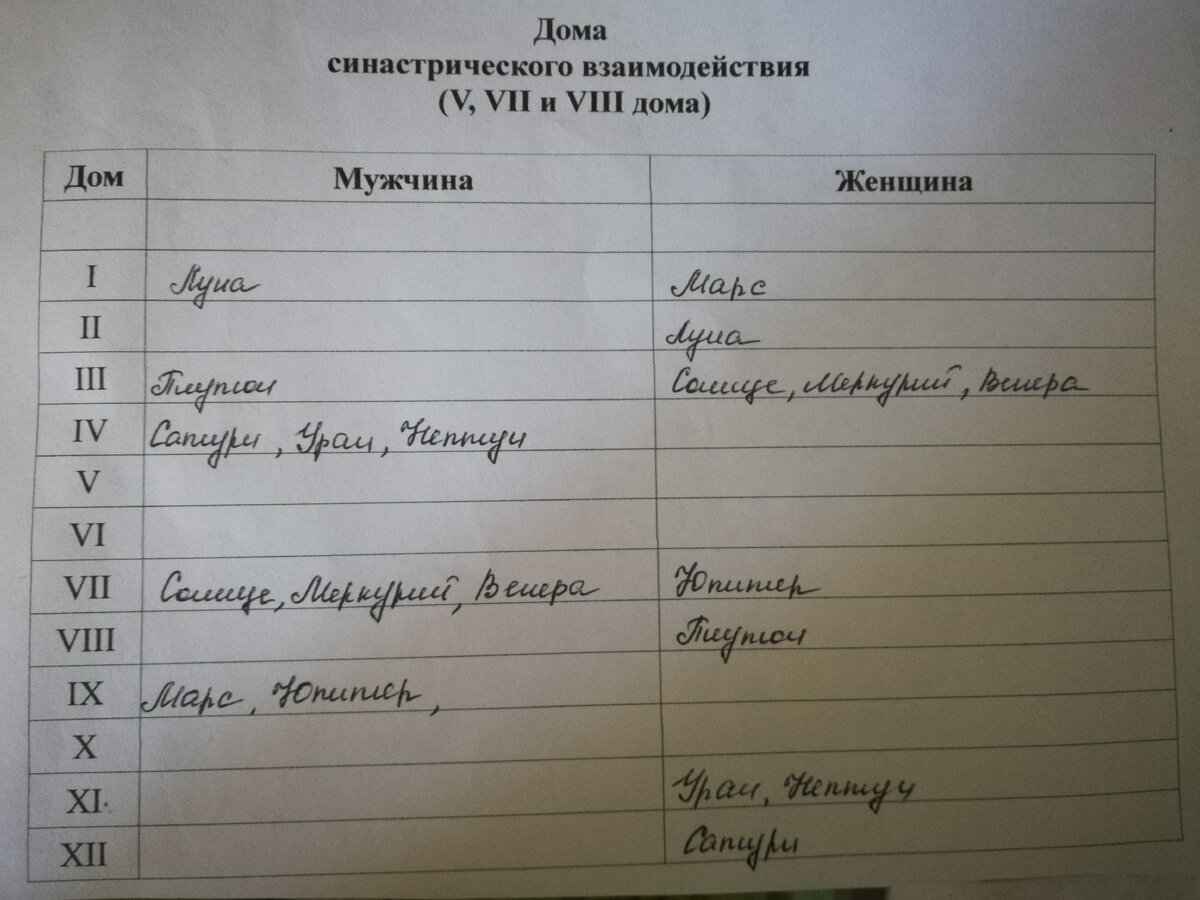 Дома
синастрического взаимодействия
(V, VII и VIII дома)
Дом Мужчина Женщина
I Луна Марс
II Луна
III Плутон Солнце, Меркурий, Венера
IV Сатурн, Уран, Нептун
V
VI
VII Солнце, Меркурий, Венера Юпитер
VIII Плутон
IX Марс, Юпитер,
X
XI Уран, Нептун
XII Сатурн